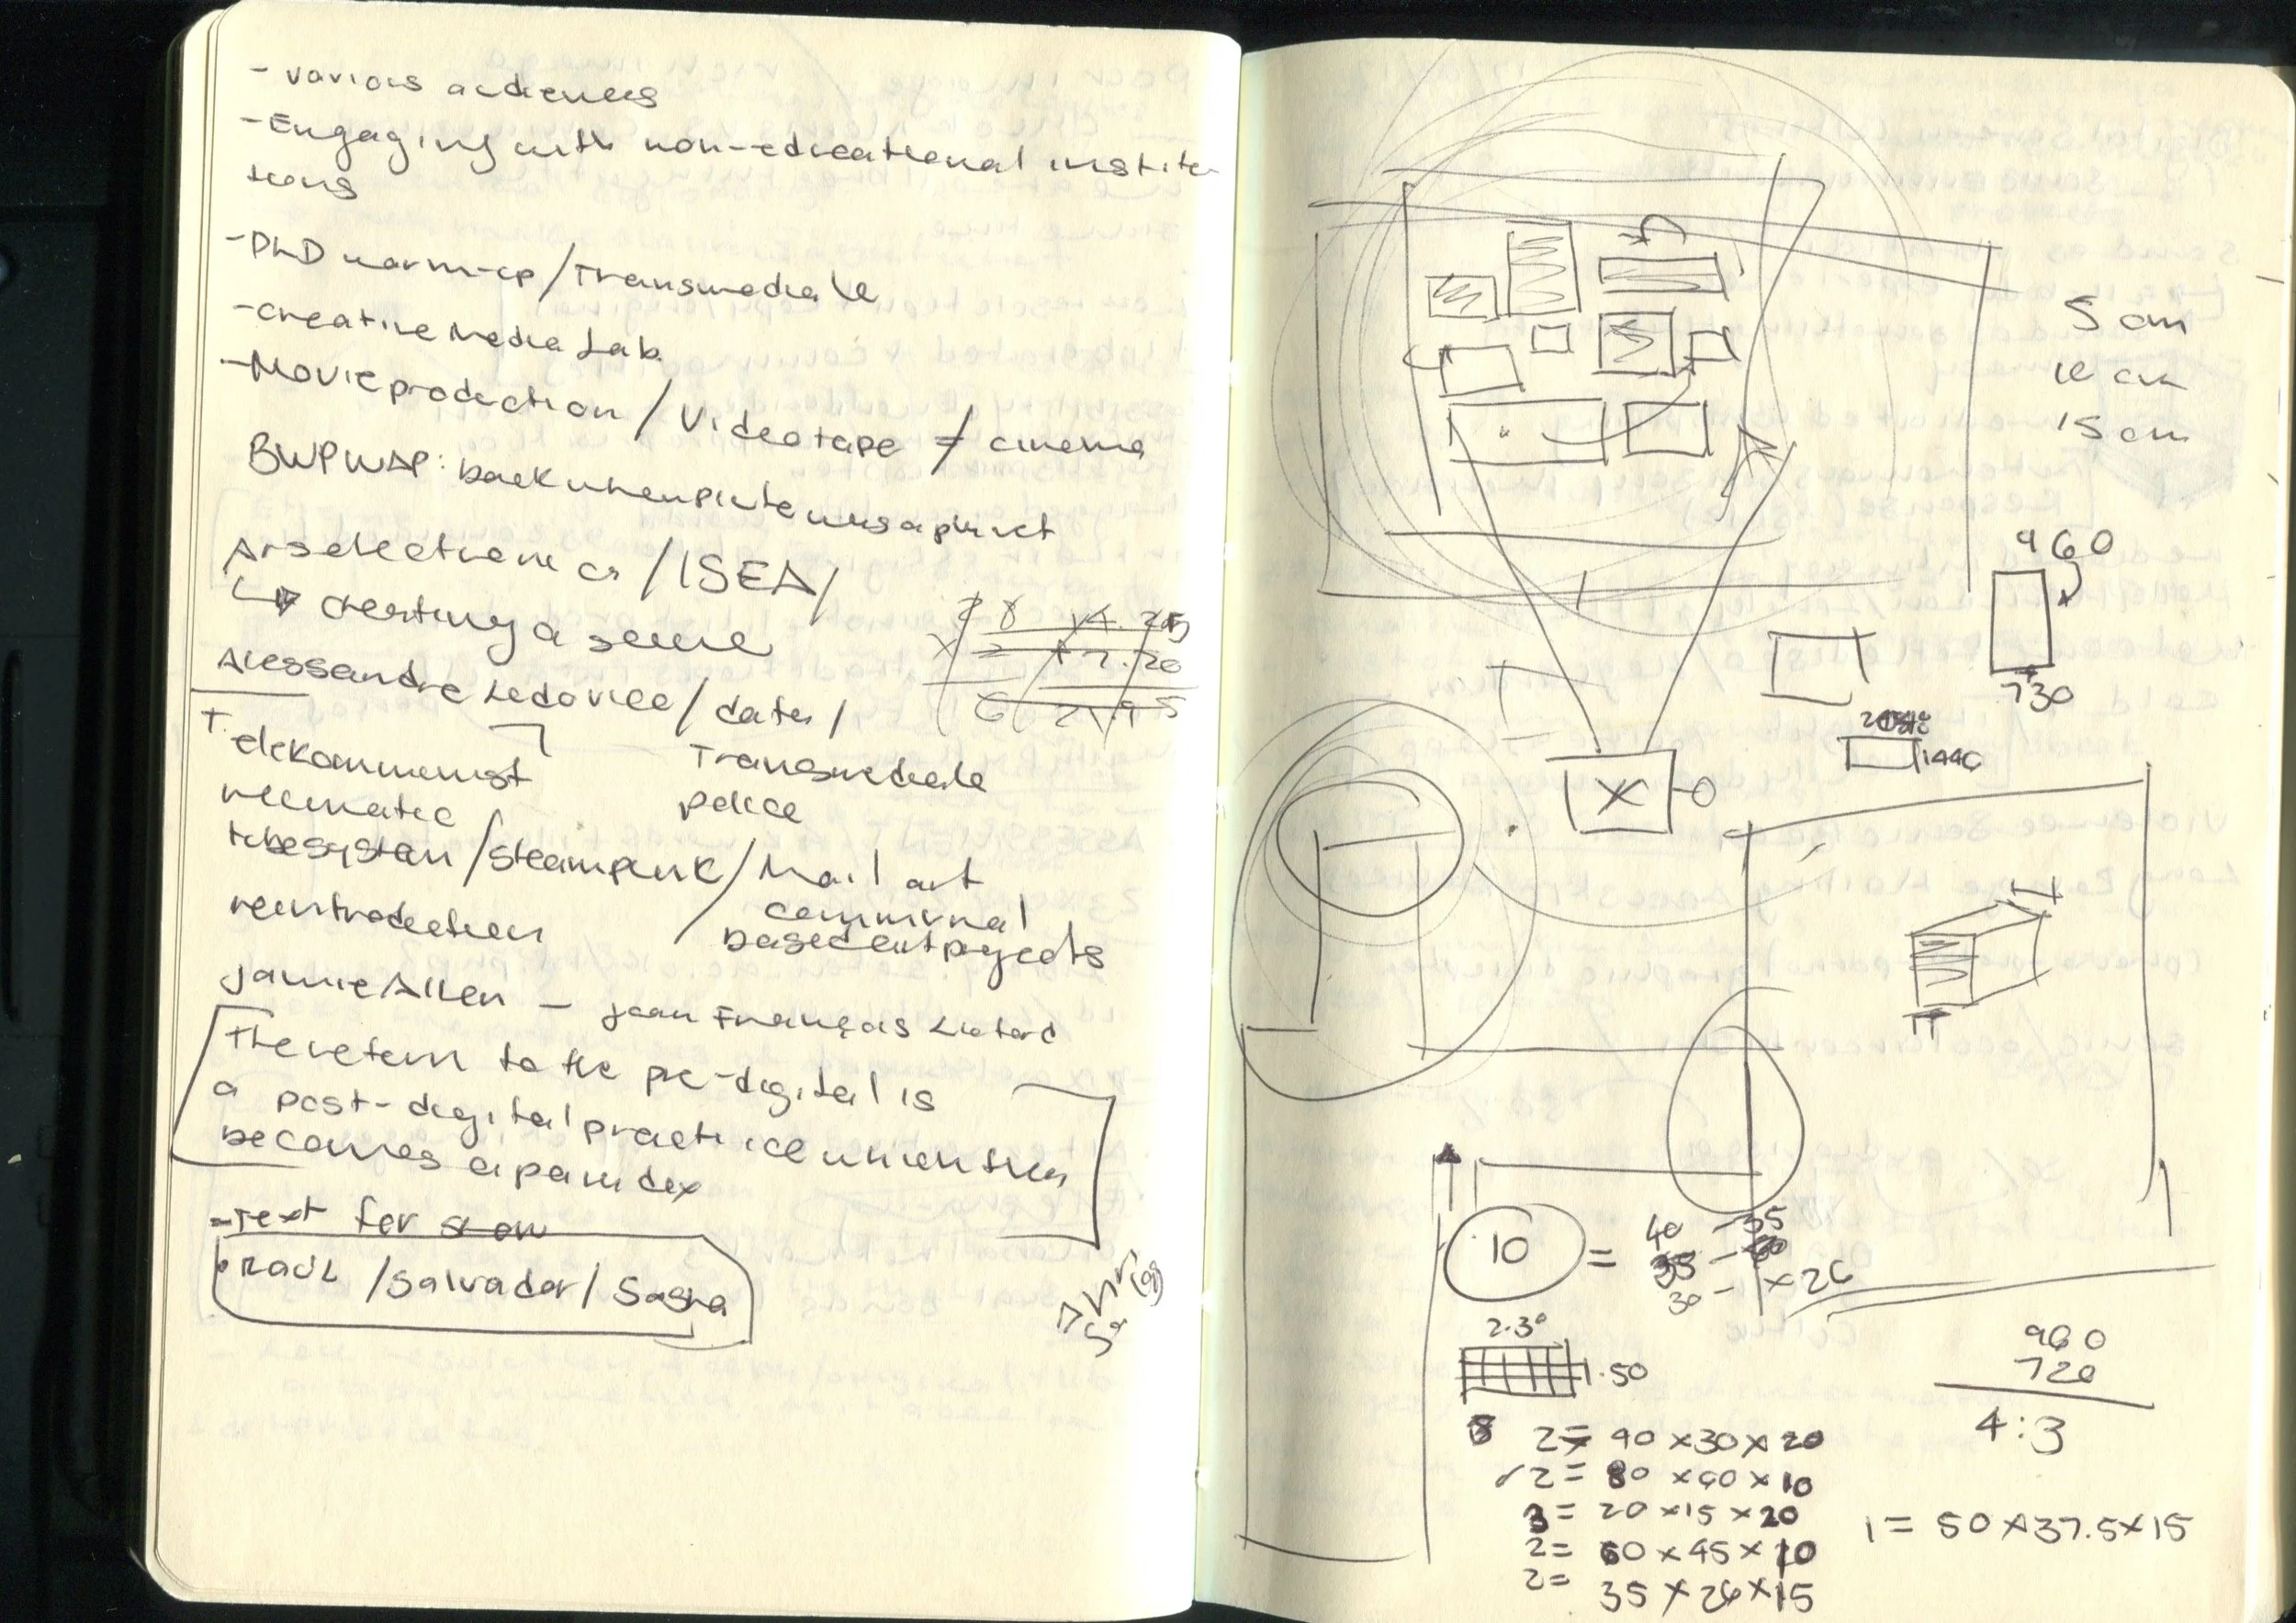 - various audiences
- Engaging with non-educational institu
tions
- PhD warm-up / Transmediale
- creative Media Lab
- Movie production / Videotape ≠ cinema
BWPWAP: back when pluto was a planet
Ars electronica / ISEA /
Alessandro Ludovico / data /
Telekommunist
Transmediale
police
tubesystem / steampunk / Mail art
communal
reintroduction
based art projects
Jamie Allen - Jean François
The return to the pre-digital is
a post-digital practice when
becomes a paradox
- Text for show
• Raúl / Salvador / Sasha
5 cm
10 cm
15 cm
960
730
1440
X
10 = 40 - 35
30 -
x 26
2.30
1.50
960
720
4:3
2 = 90 x 30 x 20
2 = 80 x 60 x 10
3 = 20 x 15 x 20
2 = 60 x 45 x 10
2 = 35 x 26 x 15
1 = 50 x 37.5 x 15